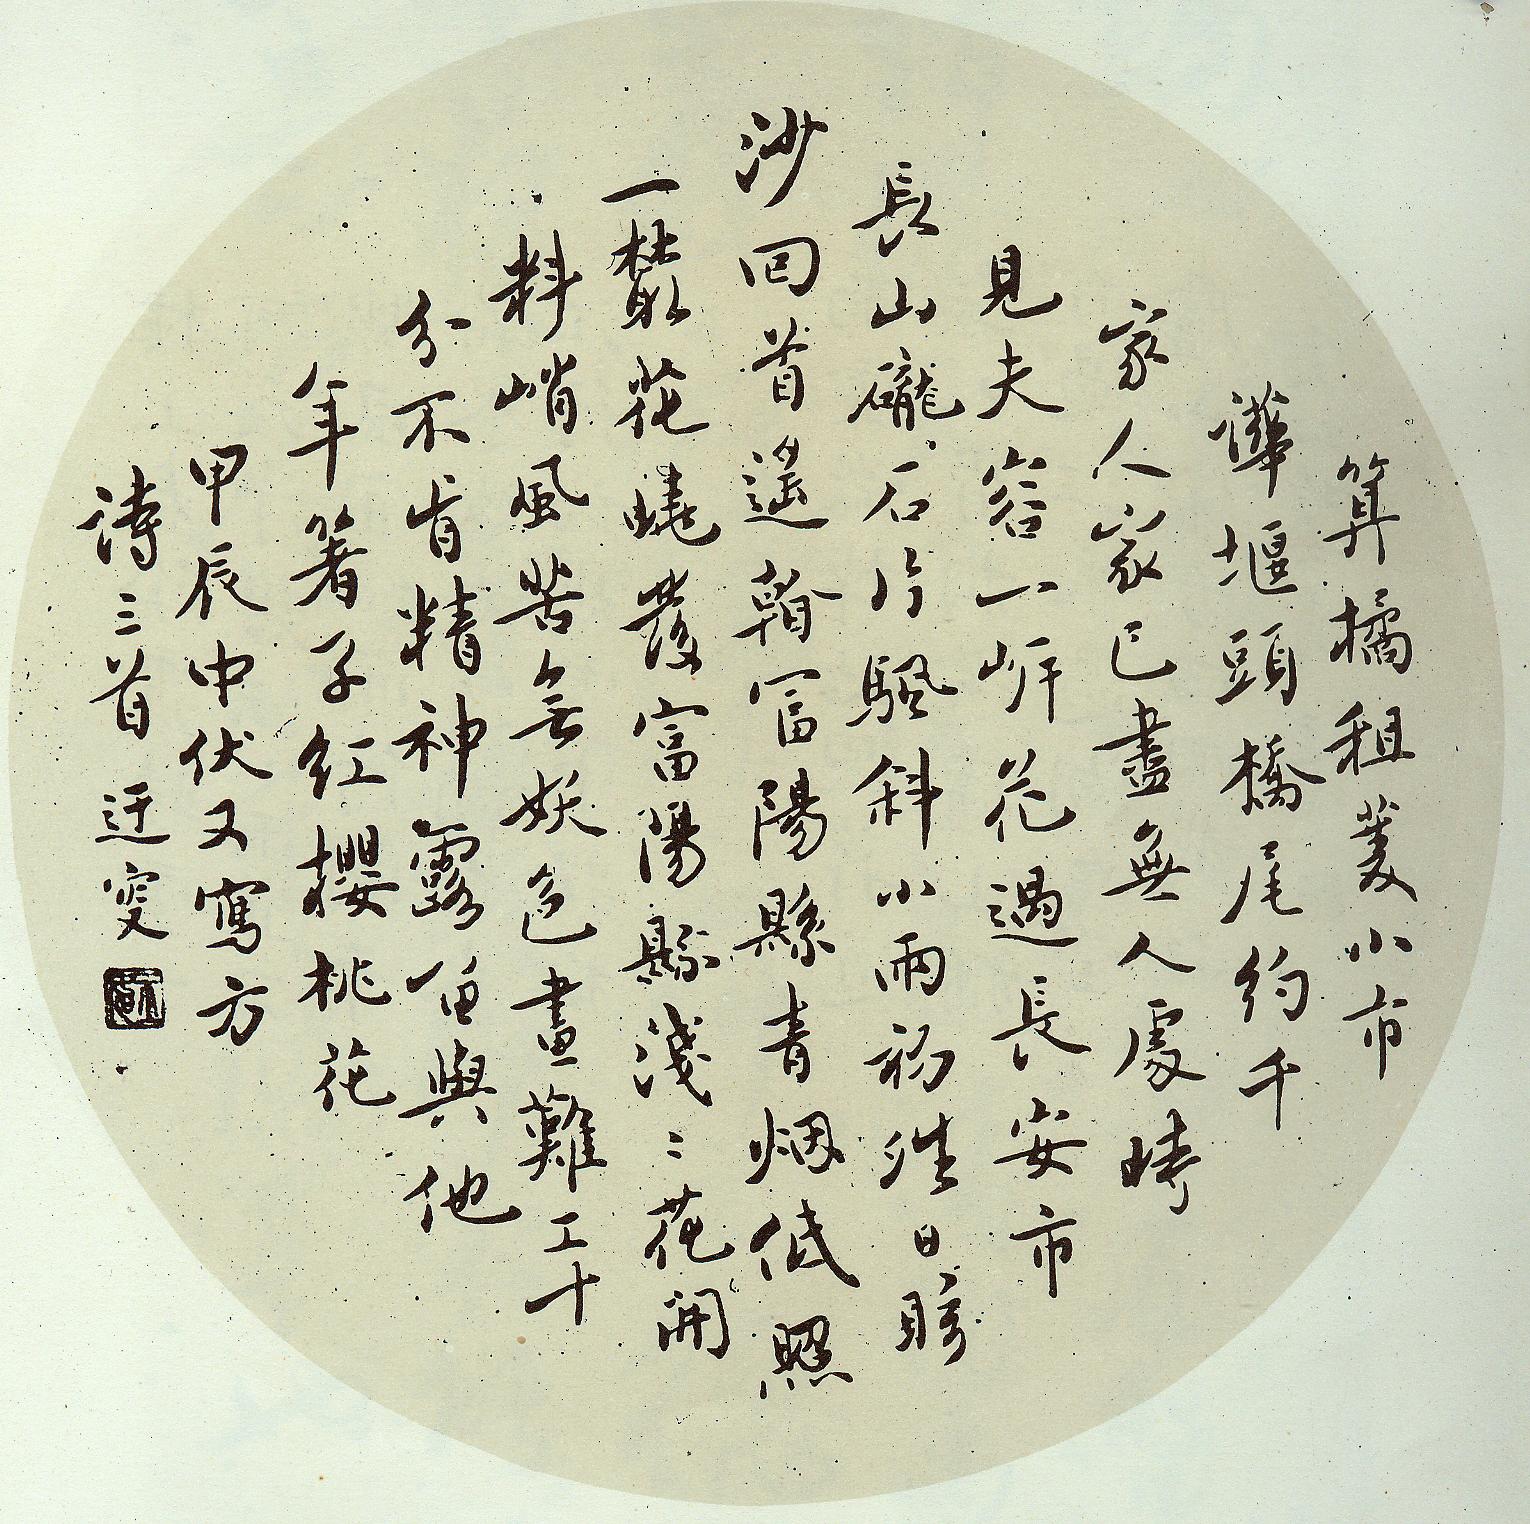 算橘租菱小市
譁堰頭橋尾約千
家人家已盡無人處時
見夫容一岍花過長安市
長山礲石片颿斜小雨初
沙回首遥
富陽縣青烟低照
一叢花
發富陽縣淺〻花開
料峭風苦無妖色畫難工十
分不肯精神露留與他
年箸子紅櫻桃花
甲辰中伏又寫方
詩三首迂叟